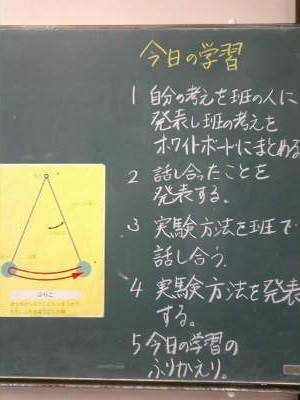 今日の学習
1 自分の考えを班の人に
発表し班の考えを
ホワイトボードにまとめる
2 話し合ったことを
発表する。
3 実験方法を班で
話し合う。
4 実験方法を発表
する。
5 今日の学習の
ふりかえり。
ふりこ